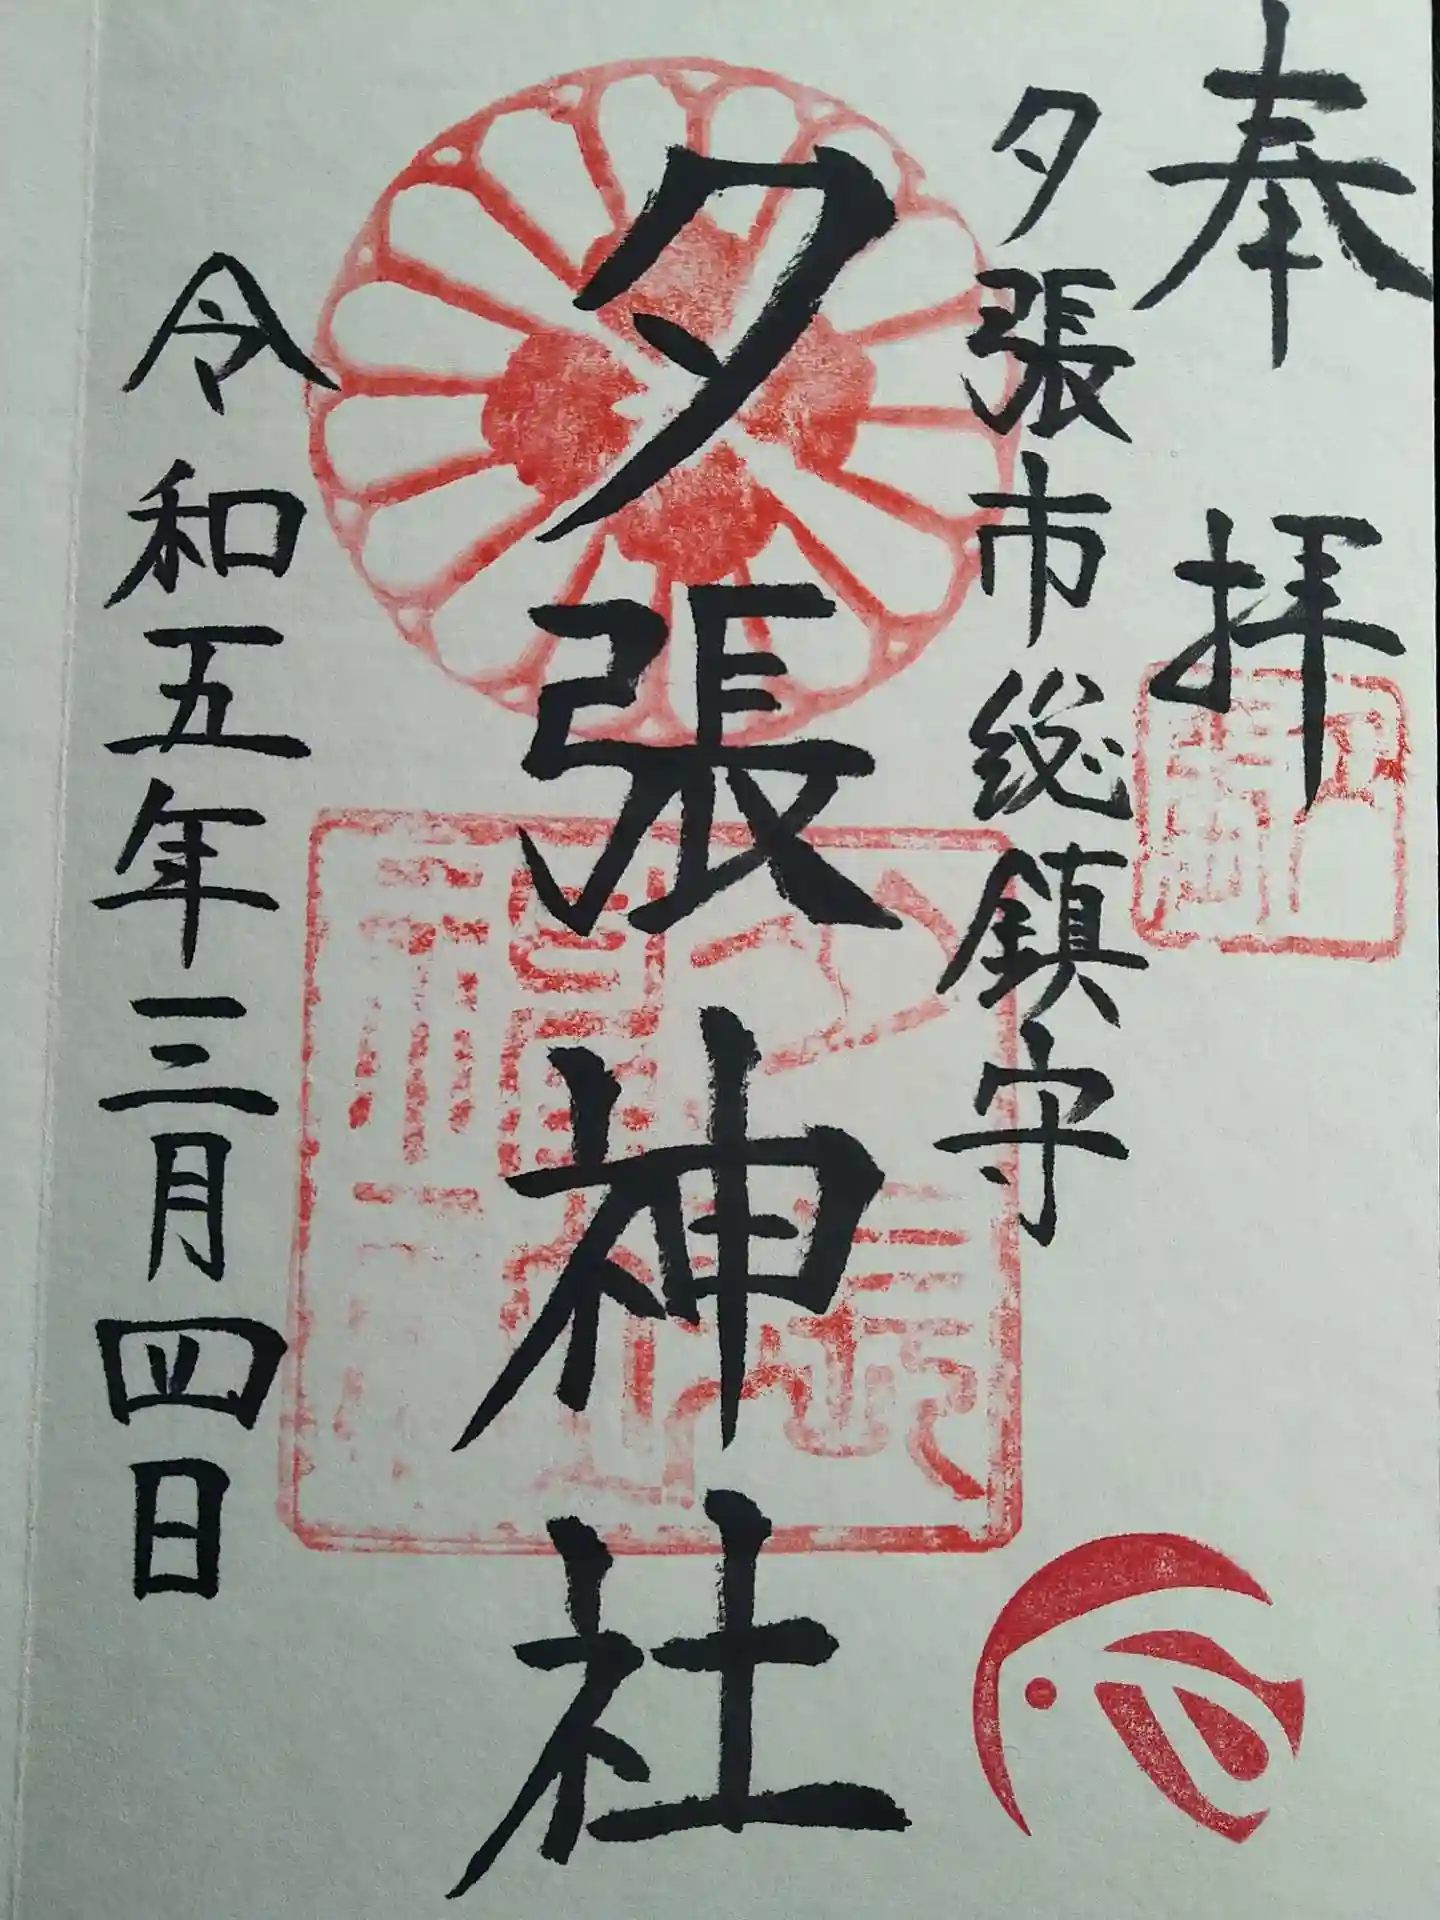 奉拝
夕張市総鎮守
夕張神社
令和五年三月四日